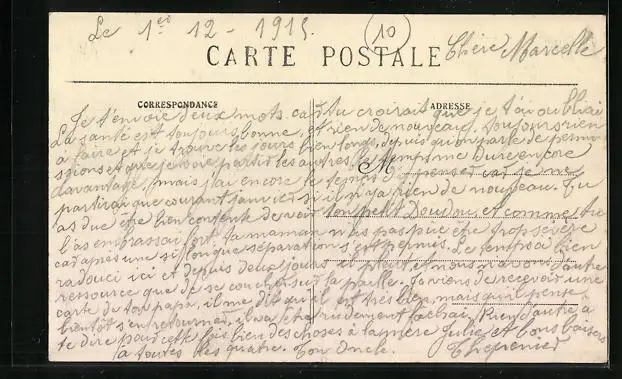 Le 1er 12 - 1915. (10)
CARTE POSTALE Chère Marcelle
CORRESPONDANCE ADRESSE
Je t'envoie deux mots car tu croirait que je t'oi oublié
La santé est toujours bonne, et rien de nouveau, toujours rien
à faire et je trouve les jours bien longs, depuis qu'on parle de permi
ssions et que je vois partir les autres, le temps me dure encore
davantage, mais j'ai encore le temps d'y penser car je ne
partirai que courant janvier si il n'y a rien de nouveau. Tu
as due être bien contente de voir ton petit Doudou, et comme tu
l'as embrassai fort. Ta maman n'as pas pue être trop sévère
car après une si longue séparation s'est permis. Le temps a bien
radouci ici et depuis deux jours il pleut, et nous n'avons d'autre
ressource que de se coucher sur la paille. Je viens de recevoir une
carte de ton papa, il me dit qu'il est très bien, mais qu'il pense
bientôt s'en retourner, il va être rudement fachai. Rien d'autre à
te dire pour cette fois bien des choses à ta mère Julie et bons baisers
à toutes les quatre. Ton Oncle.